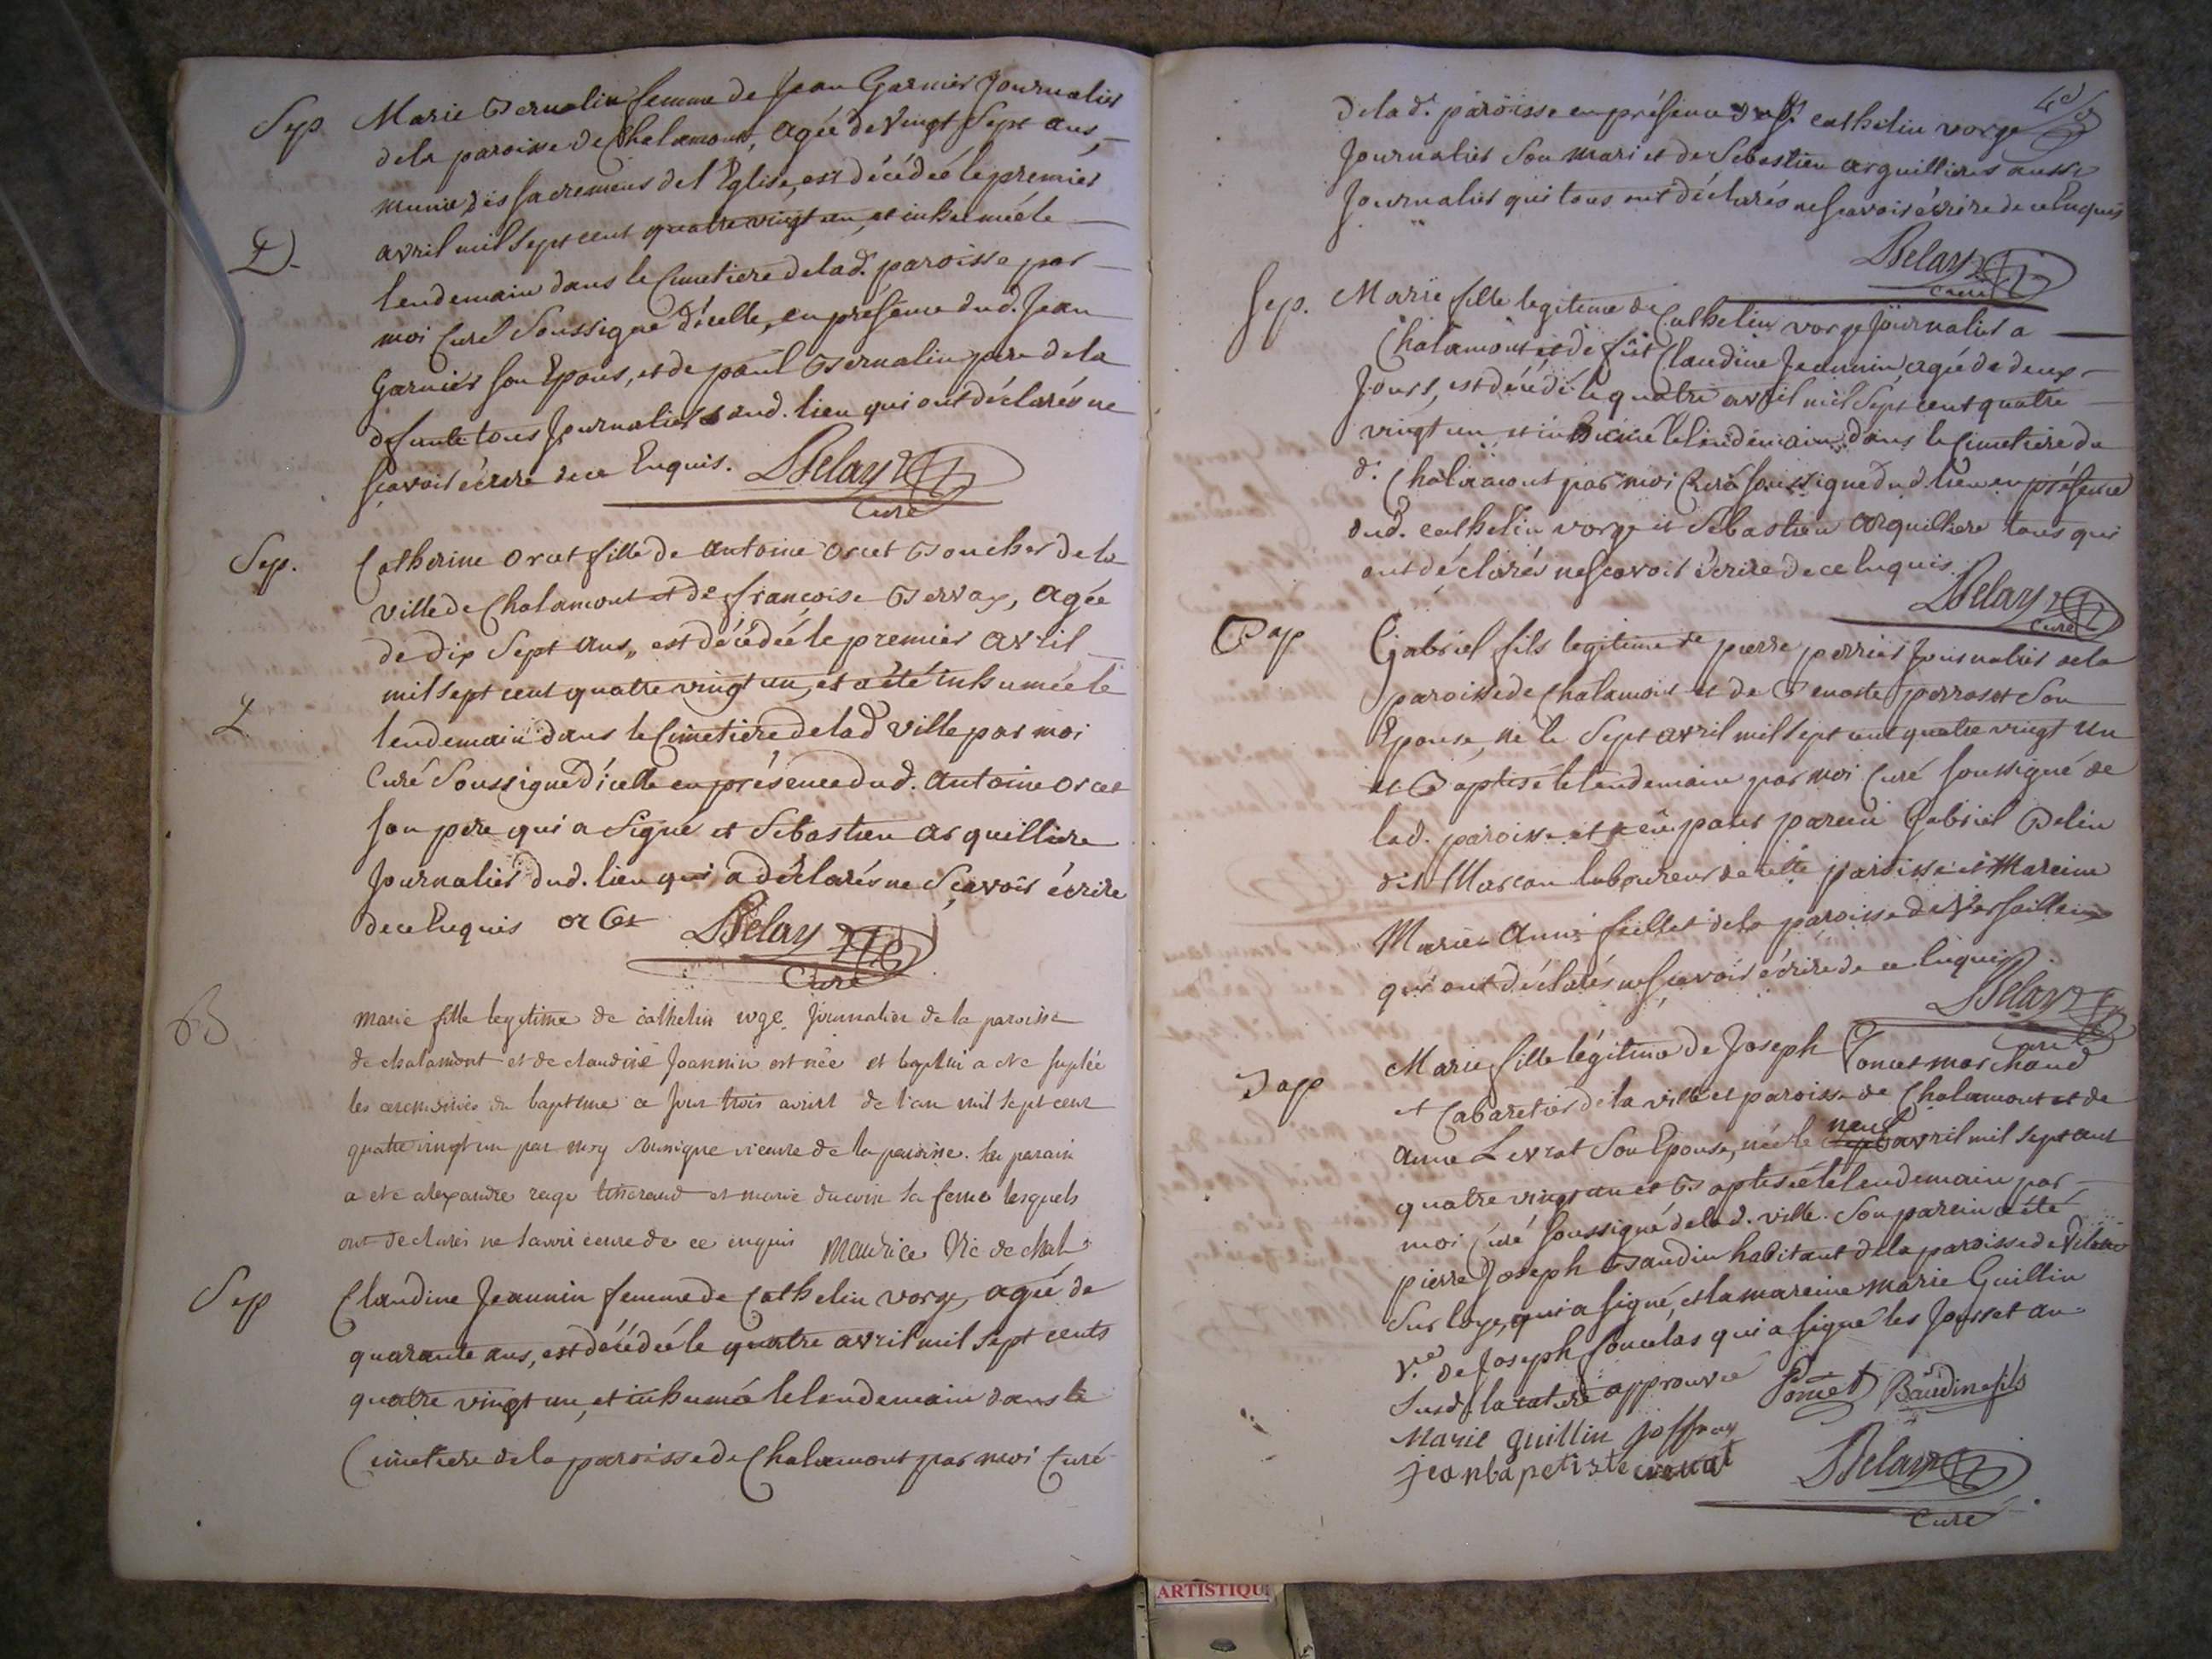 Sep Marie Bernalin femme de Jean Garnier Journalier
dela paroisse de Chalamont, agée de vingt Sept ans,
munie des sacremens de l'Eglise, est décédée le premier
avril mil sept cent quatre vingt un, et inhumée le
lendemain dans le Cimetiere de lad. paroisse par
moi Curé Soussigné d'icelle, en présence dud. Jean
Garnier son Epous, et de paul Bernalin pere de la
defunte tous Journaliers aud. lieu qui ont déclarés ne
sçavoir écrire de ce Enquis. Belay
Curé
Sep. Catherine Orcet fille de antoine Orcet Boucher de la
ville de Chalamont et de françoise Bervax, agée
de dix Sept ans, est décédée le premier avril
mil sept cent quatre vingt un, et a été inhumée le
lendemain dans le Cimetiere de lad ville par moi
Curé Soussigné d'icelle en présence dud. Antoine Orcet
son pere qui a Signé et Sebastien arquilliere
Journalier dud. lieu qui a déclarés ne Sçavoir écrire
de ce Enquis orcet Belay
Curé
B marie fille legitime de cathelin Journalier de la paroisse
de chalamont et de claudine Joannin est née et a été suplée
les ceremonies du bapteme ce Jour trois avril de l'an mil sept cent
quatre vingt un par moy soussigne vicaire de la paroisse. Son parain
a ete alexandre rage tisserand et marie sa feme lesquels
ont declarés ne savoir ecrire de ce enquis Maurice Vic de chal
Sep Claudine Jeannin femme de Cathelin vorge, agée de
quarante ans, est décédée le quatre avril mil sept cents
quatre vingt un, et inhumée le lendemain dans le
Cimetiere de la paroisse de Chalamont par moi Curé
de lad. paroisse en présence dud. cathelin vorge
Journalier Son mari et de Sebastien arquilliere aussi
Journalier qui tous ont déclarés ne sçavoir écrire de ce Enquis
Belay
Curé
Sep. Marie fille legitime de Cathelin vorge Journalier a
Chalamont et de fût Claudine Jeannin agée de deux
Jours, est décédée le quatre avril mil Sept cent quatre
vingt un, et inhumé le lendemain dans le Cimetiere de
d. Chalamont par moi Curé soussigné dud. lieu en présence
dud. cathelin vorge et Sebastien arquilliere tous qui
ont déclarés ne sçavoir écrire de ce Enquis.
Belay
Curé
Bap Gabriel fils legitime de pierre perrier Journalier de la
paroisse de Chalamont et de Benoite perroset Son
Epouse, né le Sept avril mil sept cent quatre vingt un
et Baptisé le lendemain par moi Curé soussigné de
lad. paroisse et a eû pour parein Gabriel Belin
dit Marcon laboureur de cette paroisse et Mareine
Marie Anne feillet de la paroisse de Versailleux
qui ont déclarés ne sçavoir écrire de ce Enquis.
Belay
Curé
Bap Marie fille légitime de Joseph Poncet marchand
et Cabaretier de la ville et paroisse de Chalamont et de
Anne Levrat Son Epouse, née le neuf avril mil sept cent
quatre vingt un et Baptisée le lendemain par
moi Curé soussigné de lad. ville. Son parein a été
pierre Joseph Baudin habitant de la paroisse de Vilette
Sur loye, qui a signé, et la mareine marie Guillin
Ve. de Joseph foncelas qui a signé les Jour et an
Susd. la rature approuvée Poncet Baudin fils
Marie guillin joffray
jeanbapetiste
Belay
Curé
ARTISTIQU